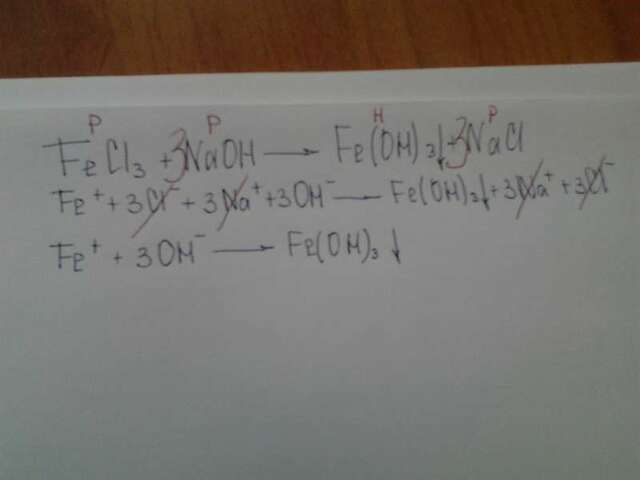 Р Р Н Р
FeCl₃ + 3NaOH → Fe(OH)₃↓ + 3NaCl
Fe⁺ + 3Cl⁻ + 3Na⁺ + 3OH⁻ → Fe(OH)₃↓ + 3Na⁺ + 3Cl⁻
Fe⁺ + 3OH⁻ → Fe(OH)₃ ↓